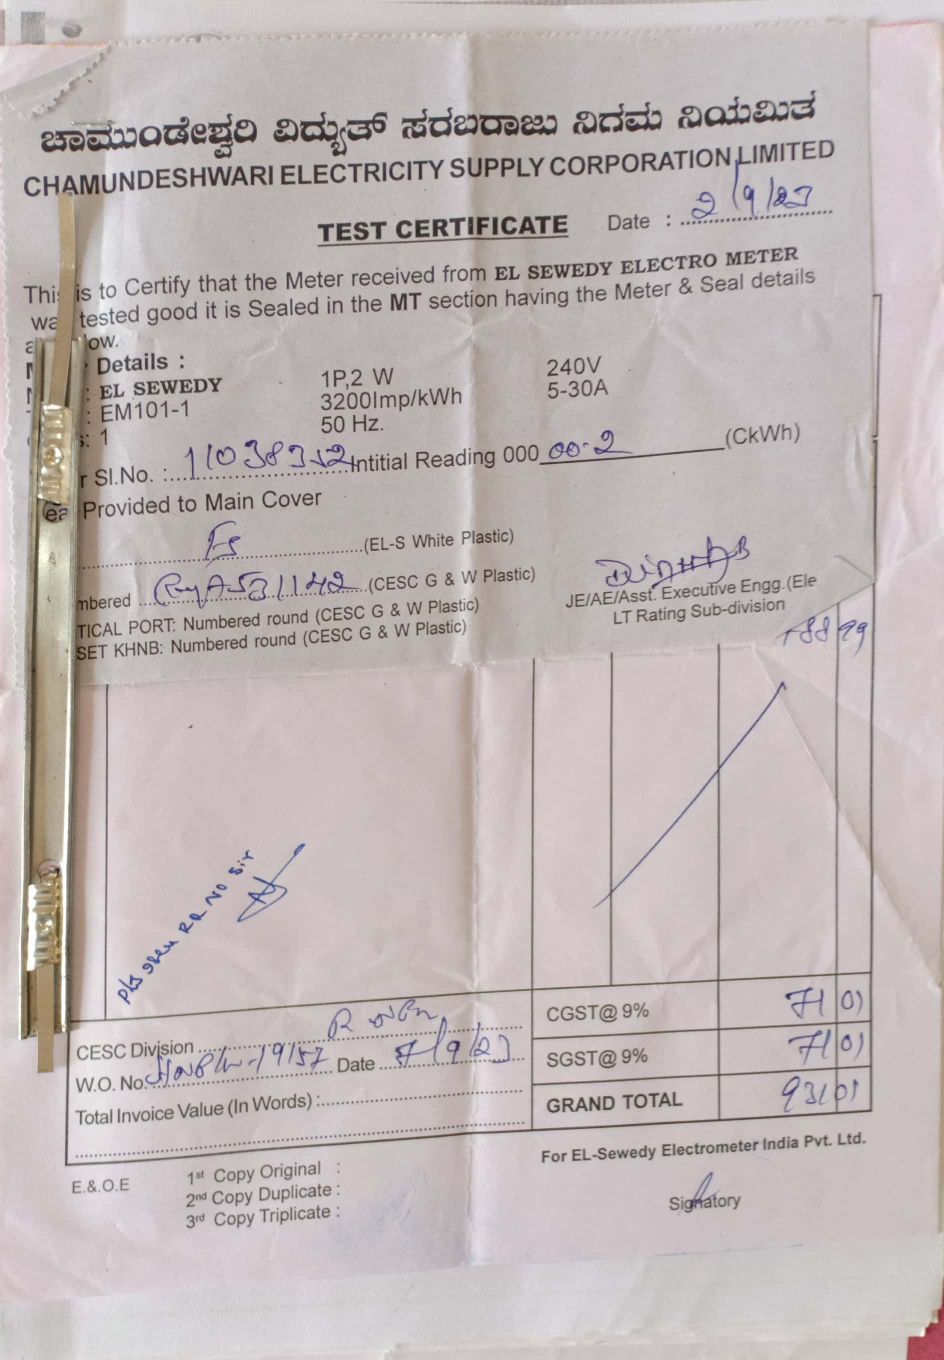 ಚಾಮುಂಡೇಶ್ವರಿ ವಿದ್ಯುತ್ ಸರಬರಾಜು ನಿಗಮ ನಿಯಮಿತ
CHAMUNDESHWARI ELECTRICITY SUPPLY CORPORATION LIMITED
TEST CERTIFICATE Date : 2/9/23
This is to Certify that the Meter received from EL SEWEDY ELECTRO METER
was tested good it is Sealed in the MT section having the Meter & Seal details
ow.
Details :
: EL SEWEDY 1P,2 W 240V
: EM101-1 3200Imp/kWh 5-30A
s: 1 50 Hz.
r Sl.No. : 11038352 Intitial Reading 000 00.2 (CkWh)
Provided to Main Cover
(EL-S White Plastic)
mbered (CESC G & W Plastic)
TICAL PORT: Numbered round (CESC G & W Plastic)
SET KHNB: Numbered round (CESC G & W Plastic)
JE/AE/Asst. Executive Engg.(Ele
LT Rating Sub-division
788 99
RR NO Sir
CGST@ 9% 71 01
CESC Division
SGST@ 9% 71 01
W.O. No. Date 7/9/23
GRAND TOTAL 931 01
Total Invoice Value (In Words) :
For EL-Sewedy Electrometer India Pvt. Ltd.
E.&.O.E
1st Copy Original :
2nd Copy Duplicate :
3rd Copy Triplicate :
Signatory